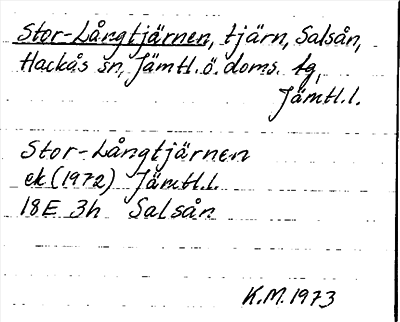 Stor-Långtjärnen, tjärn, Salsån,
Hackås sn, Jämtl.ö.doms. tg,
Jämtl.l.
Stor-Långtjärnen
ek (1972) Jämtl.l.
18E 3h Salsån
K.M. 1973